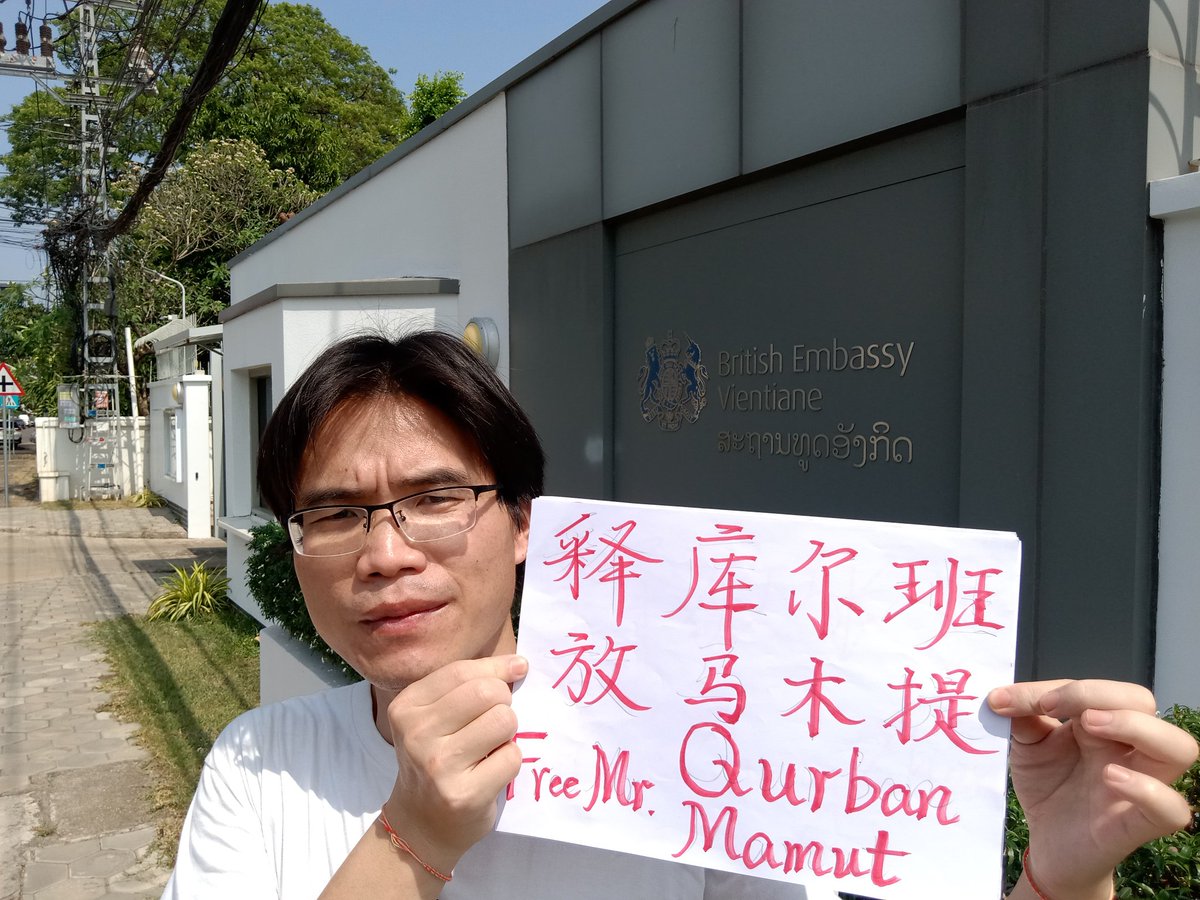 British Embassy
Vientiane
ສະຖານທູດອັງກິດ
释库尔班
放马木提
Free Mr. Qurban
Mamut